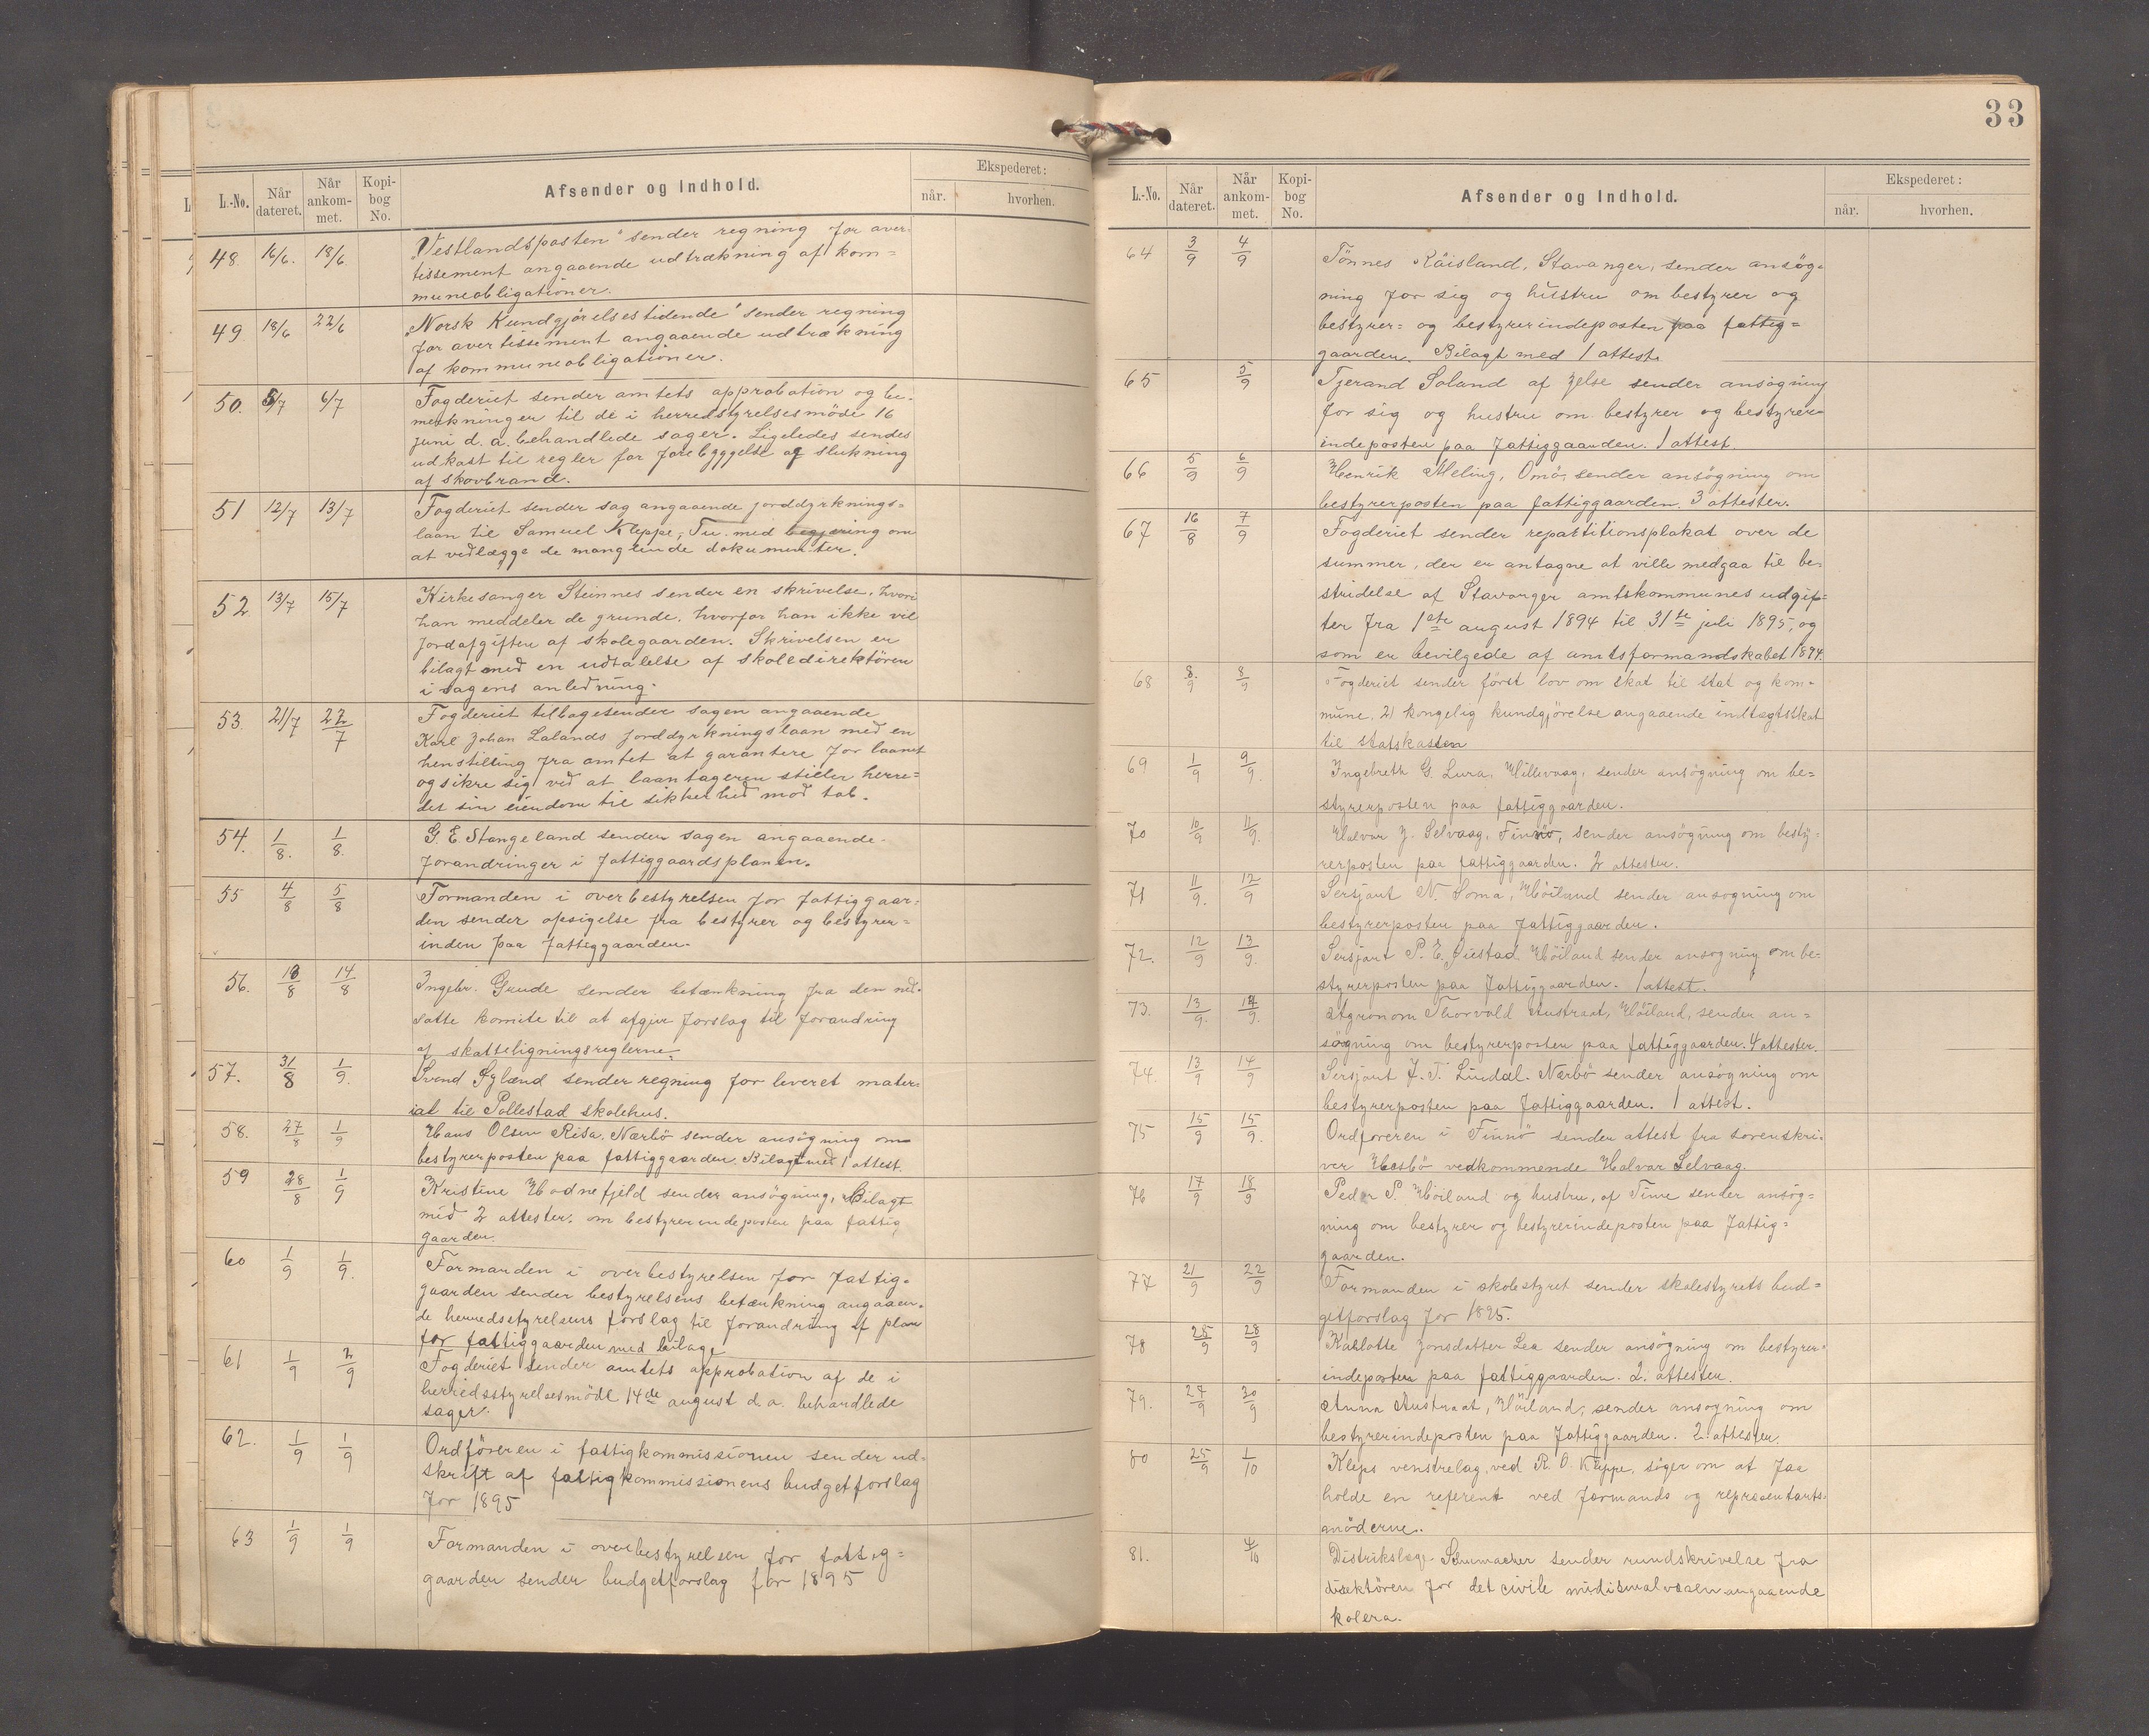 L.-No. Når dateret. Når ankommet. Kopibog No. Afsender og Indhold. Ekspederet: når. hvorhen.
48 16/6. 18/6 „Vestlandsposten“ sender regning for aver-
tissement angaaende udtrækning af kom=
muneobligationer.
49 18/6 22/6 „Norsk Kundgjørelsestidende“ sender regning
for avertissement angaaende udtrækning
af kommuneobligationer.
50. 5/7 6/7 Fogderiet sender amtets approbation og be-
merkninger til de i herredstyrelsesmöde 16
juni d. a. behandlede sager. Ligeledes sendes
udkast til regler for forebyggelse og slukning
af skovbrand.
51 12/7 13/7 Fogderiet sender sag angaaende jorddyrknings=
laan til Samuel Kleppe, Tu. med begjæring om
at vedlægge de manglende dokumenter.
52 13/7 15/7 Kirkesanger Steinnes sender en skrivelse, hvori
han meddeler de grunde, hvorfor han ikke vil
jordafgiften af skolegaarden. Skrivelsen er
bilagt med en udtalelse af skoledirektören
i sagens anledning.
53. 21/7 22/7 Fogderiet tilbagesender sagen angaaende
Karl Johan Lalands jorddyrkningslaan med en
henstilling fra amtet at garantere for laanet
og sikre sig ved at laantageren stiller herre=
det sin eiendom til sikkerhed mod tab.
54. 1/8. 1/8. G. E. Stangeland sender sagen angaaende
forandringer i fattiggaardsplanen.
55 4/8 5/8 Formanden i overbestyrelsen for fattiggaar=
den sender opsigelse fra bestyrer og bestyrer=
inden paa fattiggaarden.
56. 13/8 14/8 Ingebr. Grude sender betænkning fra den ned-
satte komite til at afgive forslag til forandring
af skatteligningsreglerne.
57. 31/8 1/9. Svend Sylænd sender regning for leveret mater=
ial til Pollestad skolehus.
58. 27/8 1/9 Hans Olsen Risa, Nærbö sender ansögning om
bestyrerposten paa fattiggaarden. Bilagt med 1 attest.
59 28/8 1/9 Kristine Hodnefjeld sender ansögning, Bilagt
med 2 attester, om bestyrerindeposten paa fattig
gaarden.
60 1/9 1/9. Formanden i overbestyrelsen for fattig=
gaarden sender bestyrelsens betænkning angaaen-
de herredsstyrelsens forslag til forandring af plan
for fattiggaarden med bilage
61 1/9 2/9 Fogderiet sender amtets approbation af de i
herredsstyrelsesmöde 14de august d. a. behandlede
sager.
62. 1/9 1/9 Ordföreren i fattigkommissionen sender ud=
skrift af fattigkommissionens budgetforslag
for 1895
63 1/9 1/9 Formanden i overbestyrelsen for fattig=
gaarden sender budgetforslag for 1895
33
L.-No. Når dateret. Når ankommet. Kopibog No. Afsender og Indhold. Ekspederet: når. hvorhen.
64 3/9 4/9 Tönnes Kåisland, Stavanger, sender ansög=
ning for sig og hustru om bestyrer og
bestyrer= og bestyrerindeposten paa fattig=
gaarden. Bilagt med 1 attest.
65 5/9 Tjerand Soland af Jelse sender ansögning
for sig og hustru om bestyrer og bestyrer=
indeposten paa fattiggaarden. 1 attest.
66 5/9 6/9 Henrik Meling, Omö, sender ansögning om
bestyrerposten paa fattiggaarden. 3 attester.
67 16/8 7/9 Fogderiet sender repartitionsplakat over de
summer, der er antagne at ville medgaa til be=
stridelse af Stavanger amtskommunes udgif=
ter fra 1ste august 1894 til 31te juli 1895, og
som er bevilgede af amtsformandskabet 1894.
68 8/9 8/9 Fogderiet sender först lov om skat til stat og kom=
mune, 2) kongelig kundgjörelse angaaende indtægtsskat
til statskassen
69 1/9 9/9. Ingebreth G. Lura, Hillevaag, sender ansögning om be=
styrerposten paa fattiggaarden.
70 10/9 11/9. Halvar J. Selvaag, Finnö, sender ansögning om besty=
rerposten paa fattiggaarden. 2 attester.
71 11/9. 12/9 Sersjant N. Soma, Höiland sender ansögning om
bestyrerposten paa fattiggaarden.
72. 12/9 13/9. Sersjant P. E. Höiland sender ansögning om be=
styrerposten paa fattiggaarden. 1 attest.
73. 13/9. 14/9. Agronom Thorvald Austraat, Höiland, sender an=
sögning om bestyrerposten paa fattiggaarden. 4 attester.
74. 13/9 14/9 Sersjant J. T. Lindal. Nærbö sender ansögning om
bestyrerposten paa fattiggaarden. 1 attest.
75 15/9 15/9. Ordföreren i Finnö sender attest fra sorenskri=
ver Hesbö vedkommende Halvar Selvaag.
76 17/9 18/9 Peder P. Höiland og hustru, af Time sender ansög=
ning om bestyrer og bestyrerindeposten paa fattig=
gaarden.
77 21/9 22/9 Formanden i skolestyret sender skolestyrets bud=
getforslag for 1895.
78 25/9 28/9 Kallotte Jonsdatter Lea sender ansögning om bestyrer=
indeposten paa fattiggaarden. 2. attester.
79. 27/9 30/9 Anna Austraat, Höiland, sender ansögning om
bestyrerindeposten paa fattiggaarden. 2 attester.
80 25/9 1/10 Kleps venstrelag, ved R. O. Kleppe, söger om at faa
holde en referent ved formands og representants-
möderne.
81. 4/10 Distriktslæge Schumacher sender rundskrivelse fra
direktören for det civile medisinalvæsen angaaende
kolera.